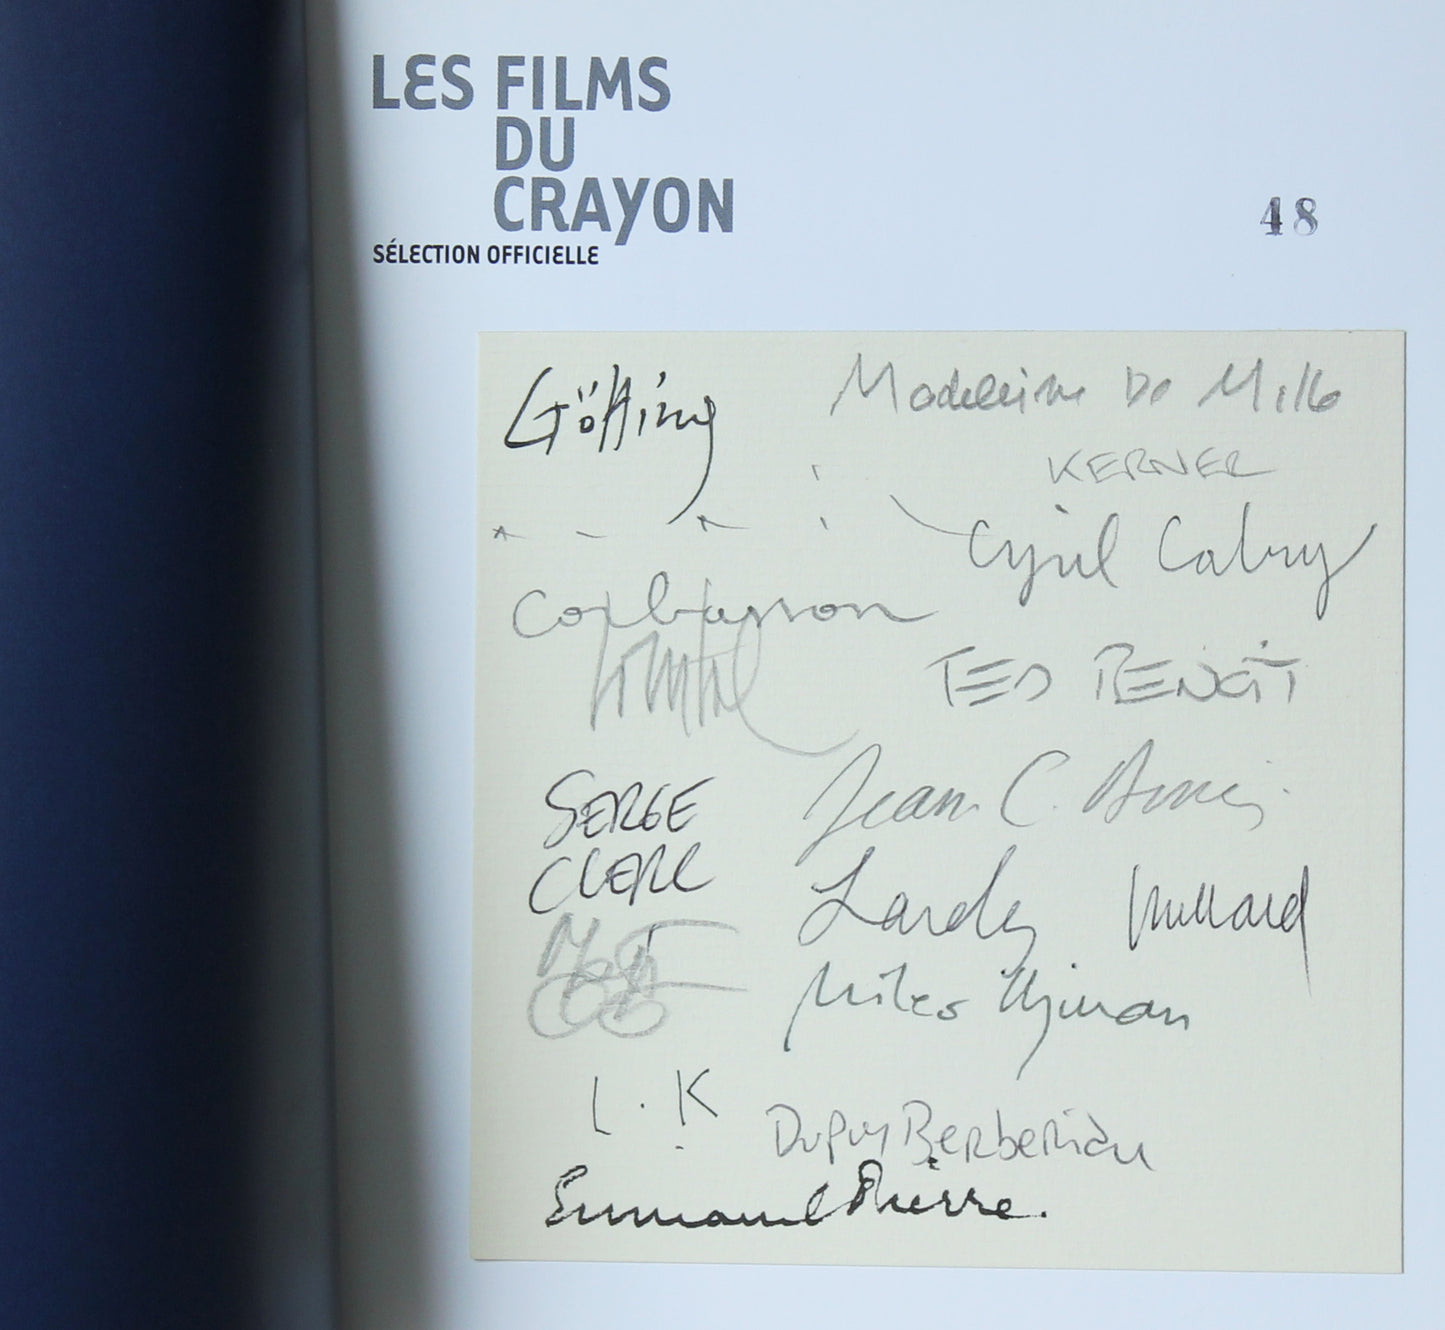 LES FILMS
DU
CRAYON
SÉLECTION OFFICIELLE
48
Götting
Madeleine De Mille
KERNER
Cyril Cabry
Corbasson
TED BENOÎT
SERGE
CLERC
Jean C. Denis
Lardy
Juillard
Miles Hyman
L. K
Dupuy Berberian
Emmanuel Pierre.